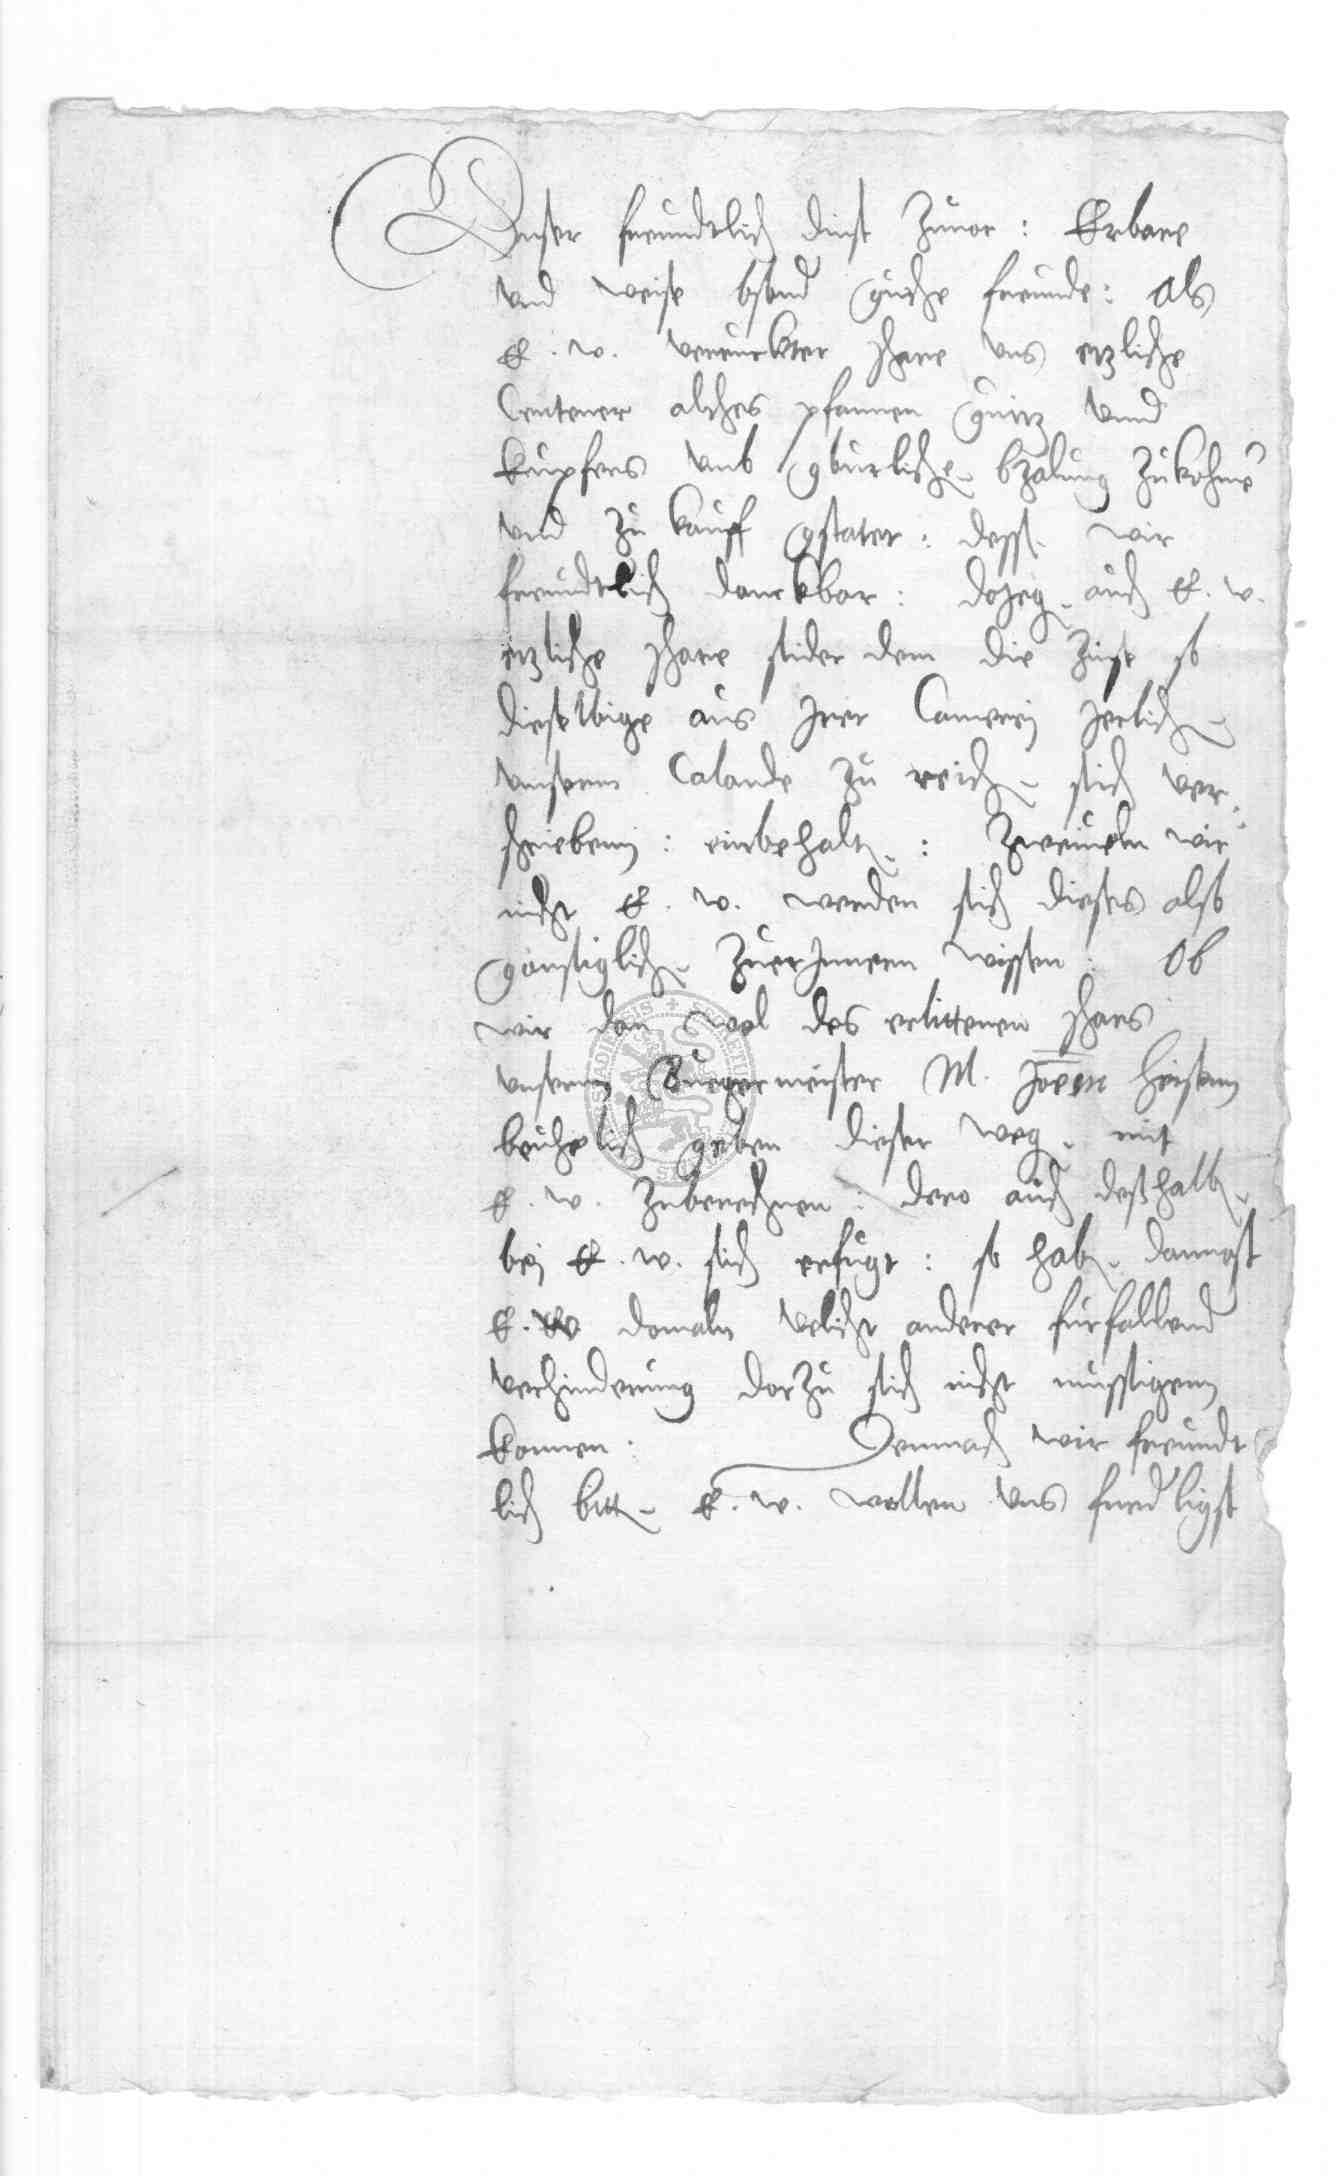 Unser freundtlich dinst Zuuor : Erbare
vnd weise bsond gunstige freunde : Als
E . w . verruckter jhare vns etzliche
Centener altches pfannen vnnd
kupfers vmb gburliche bzalung zukohme
vnd zu kauff gstatet : dess wir
freundtlich danckbar : dojeg auch E . w .
etzliche jhare sider dem die Zinse so
dieselbige aus Jrer Camerej jerlich
vnserm Calande zu reich sich ver
schriebenn : einbehalt : Zweiueln wir
nicht E . w . werden sich dieses also
gonstiglich zuerJnnern wissen : Ob
wir dan wol des erlittenen jhars
vnserm Burgermeister M . Joern
beuhelich geben dieser weg mit
E . w . Zuberechnen : dero auch deßhalb
bej E . w . sich erfugt : so hab dannost
E . w domaln villicht anderer furfallend
verhinderung dorzu sich nicht mussigenn
konnen : Demnach wir freundt
lich bitt E . w . wollen vns